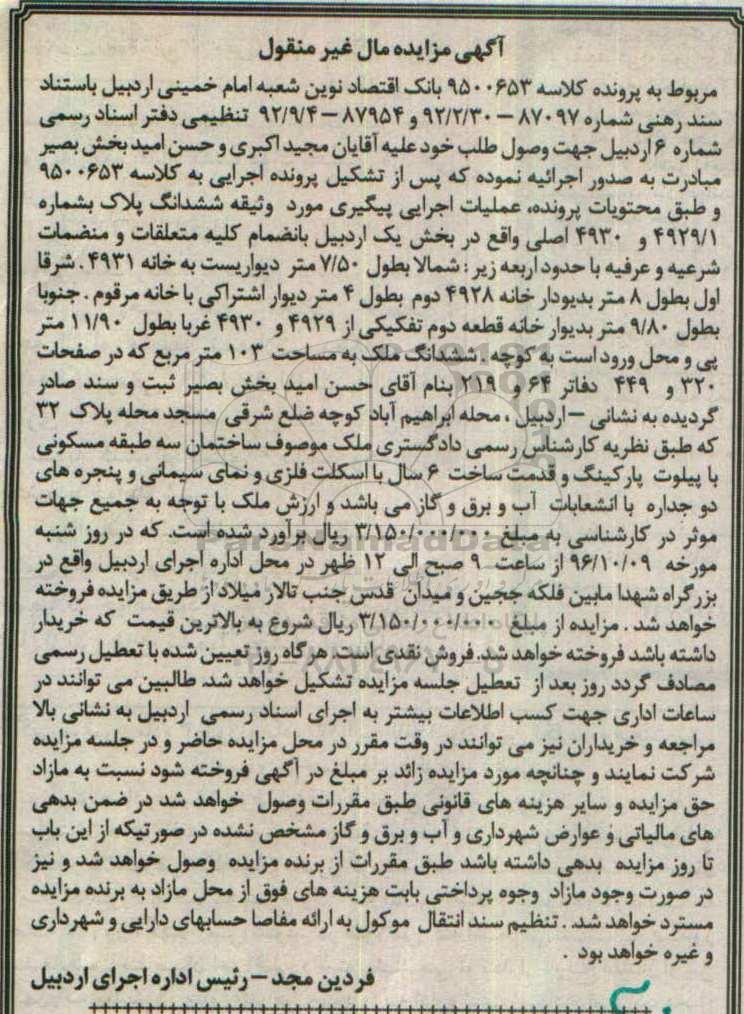 آگهی مزایده مال غیر منقول
مربوط به پرونده کلاسه ۹۵۰۰۶۵۳ بانک اقتصاد نوین شعبه امام خمینی اردبیل باستناد
سند رهنی شماره ۸۷۰۹۷ – ۹۲/۲/۳۰ و ۸۷۹۵۴ – ۹۲/۹/۴ تنظیمی دفتر اسناد رسمی
شماره ۶ اردبیل جهت وصول طلب خود علیه آقایان مجید اکبری و حسن امید بخش بصیر
مبادرت به صدور اجرائیه نموده که پس از تشکیل پرونده اجرایی به کلاسه ۹۵۰۰۶۵۳
و طبق محتویات پرونده، عملیات اجرایی پیگیری مورد وثیقه ششدانگ پلاک بشماره
۴۹۲۹/۱ و ۴۹۳۰ اصلی واقع در بخش یک اردبیل بانضمام کلیه متعلقات و منضمات
شرعیه و عرفیه با حدود اربعه زیر : شمالا بطول ۷/۵۰ متر دیواریست به خانه ۴۹۳۱ . شرقا
اول بطول ۸ متر بدیودار خانه ۴۹۲۸ دوم بطول ۴ متر دیوار اشتراکی با خانه مرقوم . جنوبا
بطول ۹/۸۰ متر بدیوار خانه قطعه دوم تفکیکی از ۴۹۲۹ و ۴۹۳۰ غربا بطول ۱۱/۹۰ متر
پی و محل ورود است به کوچه . ششدانگ ملک به مساحت ۱۰۳ متر مربع که در صفحات
۳۲۰ و ۴۴۹ دفاتر ۶۴ و ۲۱۹ بنام آقای حسن امید بخش بصیر ثبت و سند صادر
گردیده به نشانی – اردبیل ، محله ابراهیم آباد کوچه ضلع شرقی مسجد محله پلاک ۳۲
که طبق نظریه کارشناس رسمی دادگستری ملک موصوف ساختمان سه طبقه مسکونی
با پیلوت پارکینگ و قدمت ساخت ۶ سال با اسکلت فلزی و نمای سیمانی و پنجره های
دو جداره با انشعابات آب و برق و گاز می باشد و ارزش ملک با توجه به جمیع جهات
موثر در کارشناسی به مبلغ ۳/۱۵۰/۰۰۰/۰۰۰ ریال برآورد شده است. که در روز شنبه
مورخه ۹۶/۱۰/۰۹ از ساعت ۹ صبح الی ۱۲ ظهر در محل اداره اجرای اردبیل واقع در
بزرگراه شهدا مابین فلکه ججین و میدان قدس جنب تالار میلاد از طریق مزایده فروخته
خواهد شد . مزایده از مبلغ ۳/۱۵۰/۰۰۰/۰۰۰ ریال شروع به بالاترین قیمت که خریدار
داشته باشد فروخته خواهد شد. فروش نقدی است. هرگاه روز تعیین شده با تعطیل رسمی
مصادف گردد روز بعد از تعطیل جلسه مزایده تشکیل خواهد شد. طالبین می توانند در
ساعات اداری جهت کسب اطلاعات بیشتر به اجرای اسناد رسمی اردبیل به نشانی بالا
مراجعه و خریداران نیز می توانند در وقت مقرر در محل مزایده حاضر و در جلسه مزایده
شرکت نمایند و چنانچه مورد مزایده زائد بر مبلغ در آگهی فروخته شود نسبت به مازاد
حق مزایده و سایر هزینه های قانونی طبق مقررات وصول خواهد شد در ضمن بدهی
های مالیاتی و عوارض شهرداری و آب و برق و گاز مشخص نشده در صورتیکه از این باب
تا روز مزایده بدهی داشته باشد طبق مقررات از برنده مزایده وصول خواهد شد و نیز
در صورت وجود مازاد وجوه پرداختی بابت هزینه های فوق از محل مازاد به برنده مزایده
مسترد خواهد شد . تنظیم سند انتقال موکول به ارائه مفاصا حسابهای دارایی و شهرداری
و غیره خواهد بود .
فردین مجد – رئیس اداره اجرای اردبیل
ParsNamadData